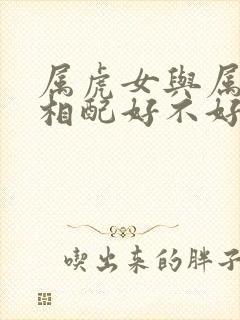 属虎女與属
相配好不好
喫出来的胖子